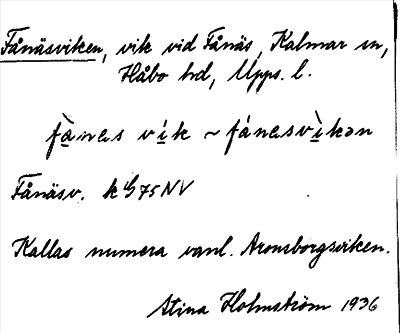 Fånäsviken, vik vid Fånäs, Kalmar sn,
Håbo hd, Upps. l.
fànes vík ~ fánesvìkən
Fånäsv. k 75 NV
Kallas numera vanl. Aronsborgsviken.
Stina Holmström 1936